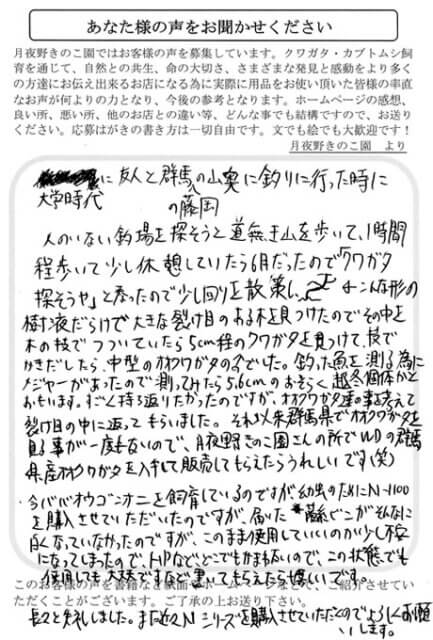 あなた様の声をお聞かせください
月夜野きのこ園ではお客様の声を募集しています。クワガタ・カブトムシ飼
育を通じて、自然との共生、命の大切さ、さまざまな発見と感動をより多く
の方達にお伝え出来るお店になる為に実際に用品をお使い頂いた皆様の率直
なお声が何よりの力となり、今後の参考となります。ホームページの感想、
良い所、悪い所、他のお店との違い等、どんな事でも結構ですので、お送り
ください。応募はがきの書き方は一切自由です。文でも絵でも大歓迎です!
月夜野きのこ園 より
に友人と群馬の山奥に釣りに行った時に
大学時代 の藤岡
人のいない釣場を探そうと道無き山を歩いて、1時間
程歩いて少し休憩していたら6月だったので「クワガタ
探そうや」と思ったので少し回りを散策し、こんな形の
樹液だらけで大きな裂け目のある木を見つけたのでその中を
木の枝でつついていたら5cm程のクワガタを見つけて、枝で
かきだしたら、中型のオオクワガタの♂でした。釣った魚を測る為に
メジャーがあったので測ってみたら5.6cmのおそらく越冬個体かと
おもいます。すごく持ち返りたかったのですが、オオクワガタ達の事を考えて
裂け目の中に返ってもらいました。それ以来群馬県でオオクワガタを
見る事が一度もないので、月夜野きのこ園さんの所でWDの群馬
県産オオクワガタを入手して販売してもらえたらうれしいです(笑)
今ババオウゴンオニを飼育しているのですが幼虫のためにN-1100
を購入させていただいたのですが、届いた
白くなっていなかったのですが、このまま使用していいのか少し不安
になってしまったので、HPなどどこでもかまわないので、この状態でも
使用しても大丈夫ですなど書いてもらえたら嬉しいです。
このお客様の声を書籍など紙面や
ご紹介させてい
ただくことがございます。ご了承の上お送り下さい。
長々と失礼しました。また近々Nシリーズを購入させていただくのでよろしくお願
いします。